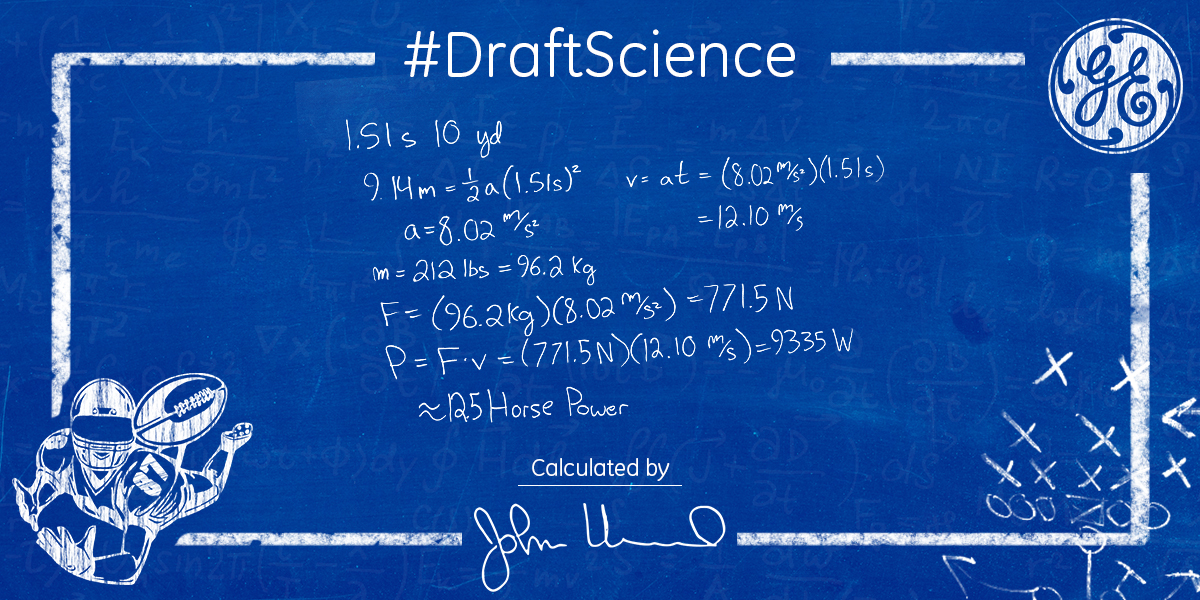 #DraftScience
GE
1.51s 10 yd
9.14m = ½a(1.51s)² v = at = (8.02 m/s²)(1.51s)
a = 8.02 m/s² = 12.10 m/s
m = 212 lbs = 96.2 Kg
F = (96.2kg)(8.02 m/s²) = 771.5 N
P = F·v = (771.5N)(12.10 m/s) = 9335 W
≈ 12.5 Horse Power
Calculated by